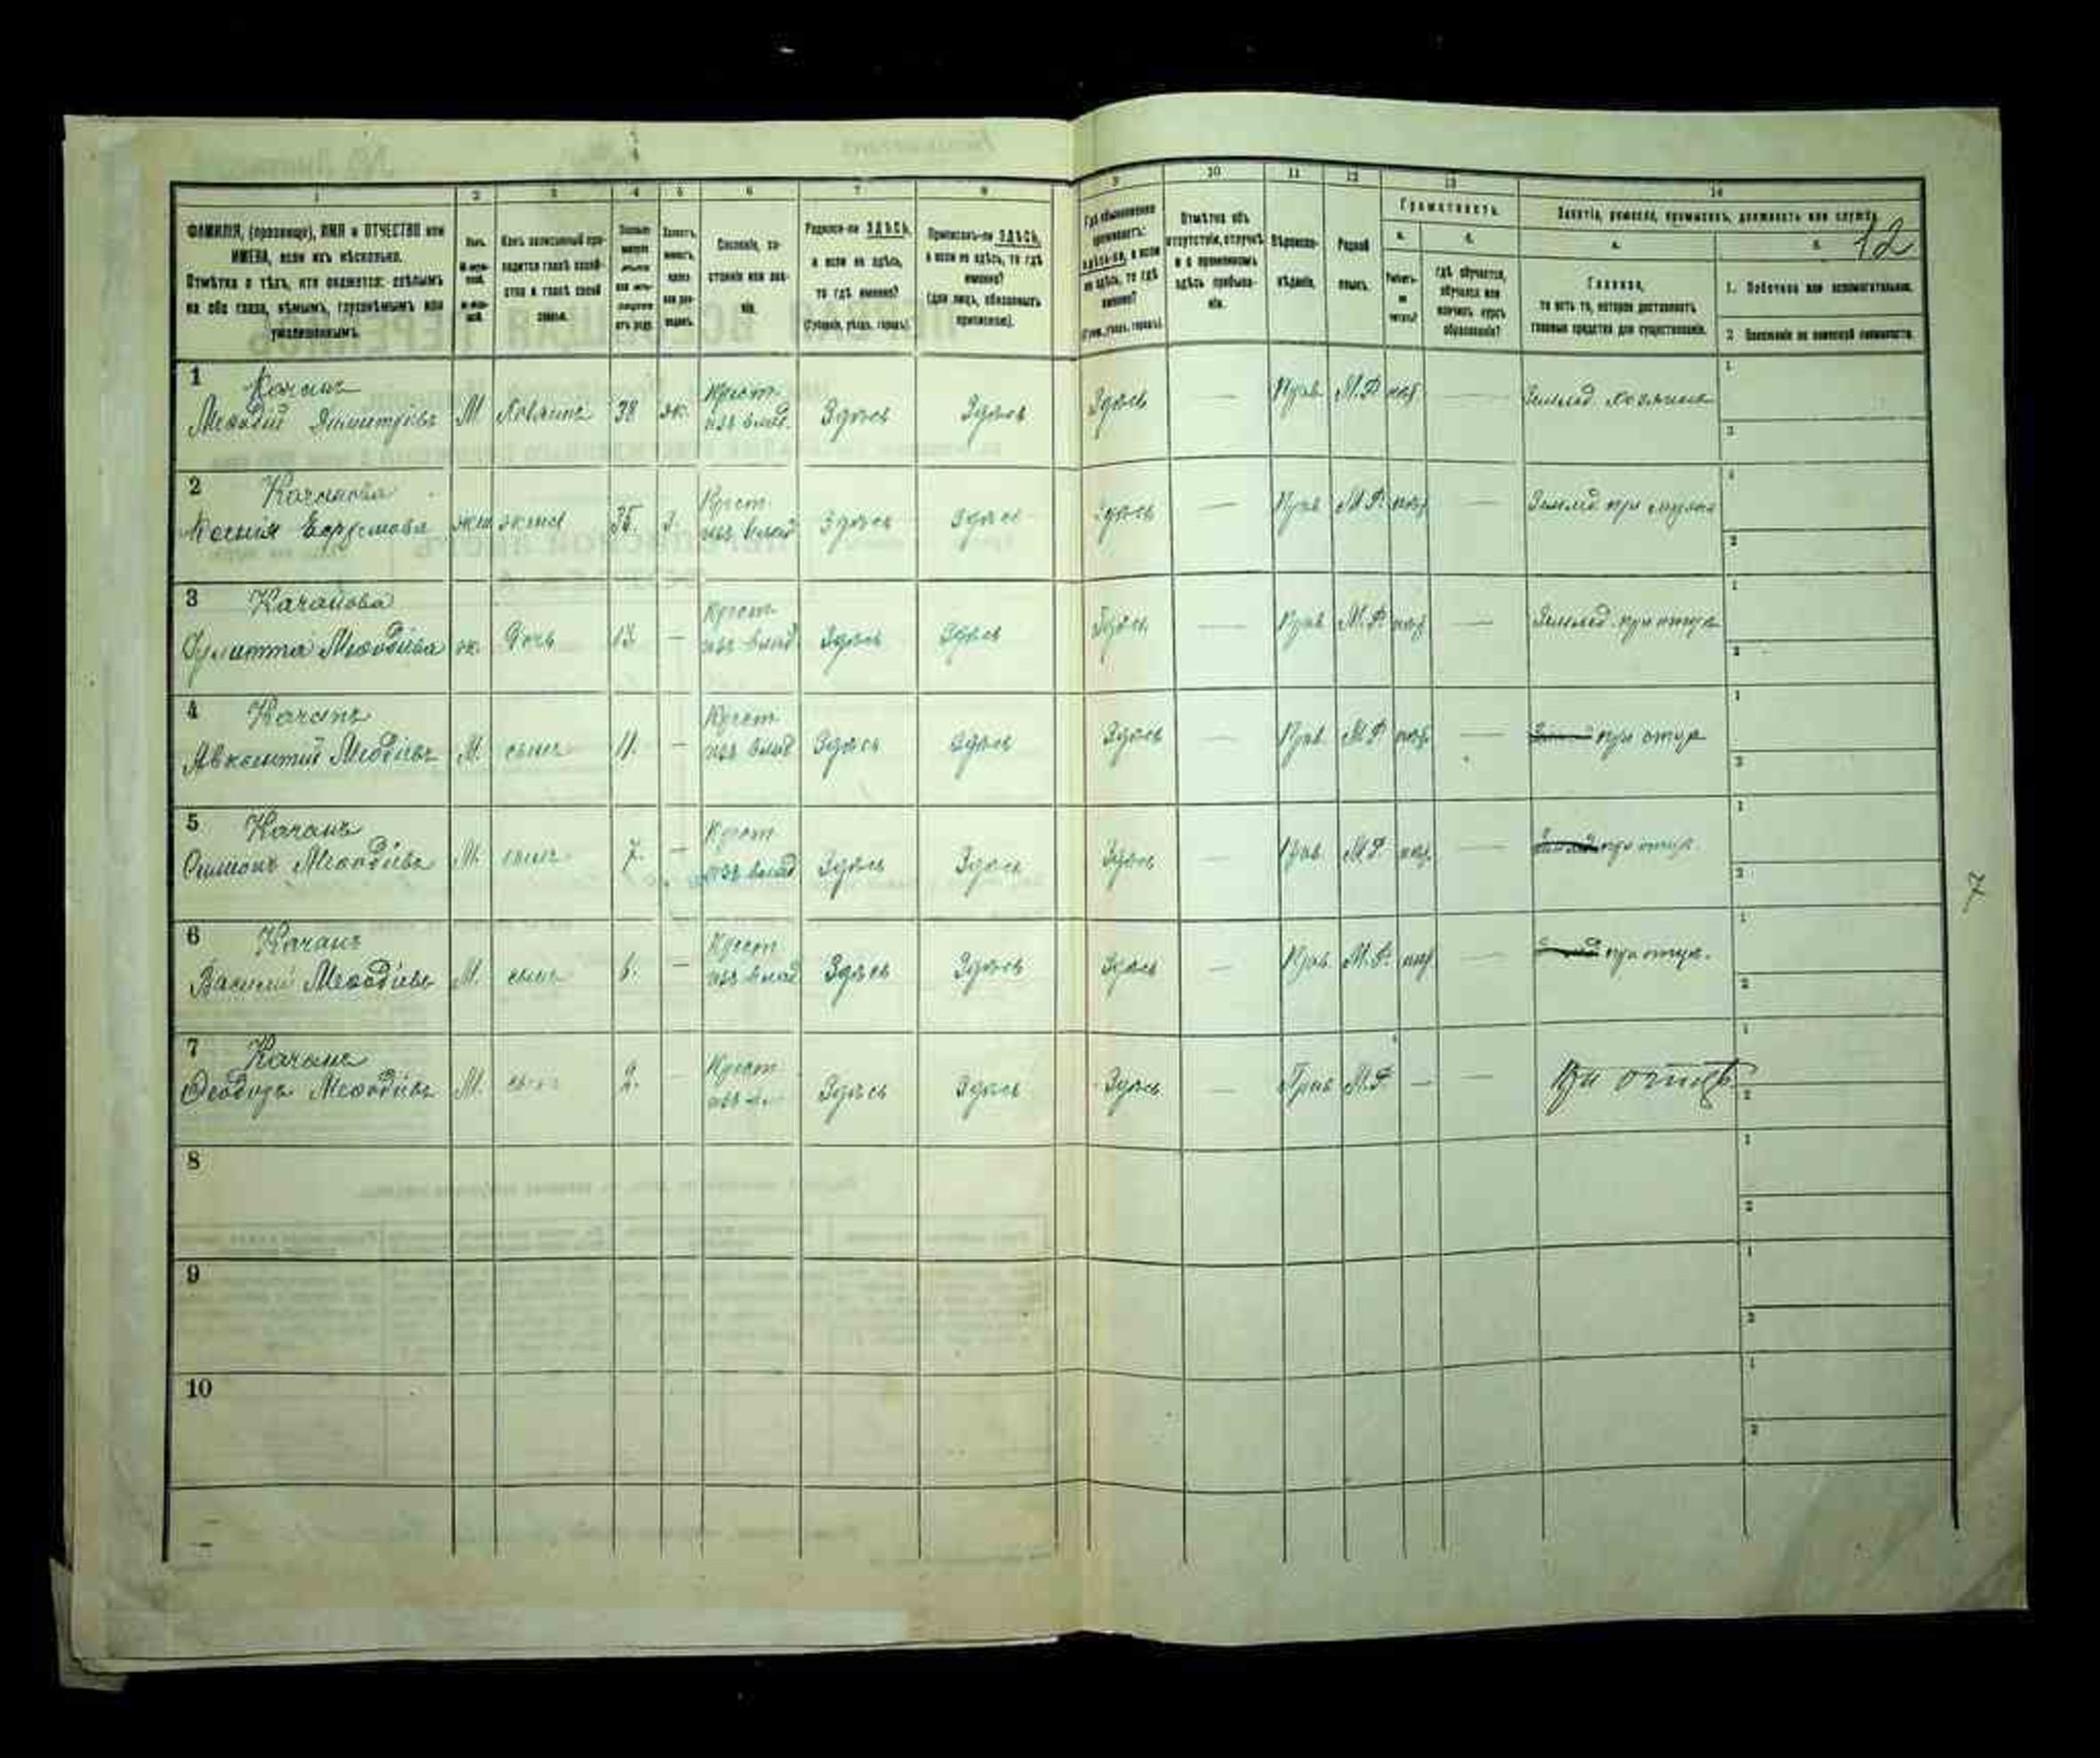 1 2 3 4 5 6 7 8 9 10 11 12 13 14
ФАМИЛІЯ, (прозвище), ИМЯ и ОТЧЕСТВО или
ИМЕНА, если ихъ нѣсколько.
Отмѣтка о тѣхъ, кто окажется: слѣпымъ
на оба глаза, нѣмымъ, глухонѣмымъ или
умалишеннымъ.
Полъ.
Какъ записанный при-
ходится главѣ хозяй-
ства и главѣ своей
семьи.
Сословіе, со-
стояніе или зва-
ніе.
Родился-ли ЗДѢСЬ,
а если не здѣсь,
то гдѣ именно?
(Губернія, уѣздъ, городъ).
Приписанъ-ли ЗДѢСЬ,
а если не здѣсь, то гдѣ
именно?
(для лицъ, обязанныхъ
припискою).
Гдѣ обыкновенно
проживаетъ:
здѣсь-ли, а если
не здѣсь, то гдѣ
именно?
Отмѣтка объ
отсутствіи, отлучкѣ
и о временномъ
здѣсь пребыва-
ніи.
Вѣроиспо-
вѣданіе.
Родной
языкъ.
Грамотность.
а. б.
Умѣетъ-
ли
читать?
гдѣ обучается,
обучался или
кончилъ курсъ
образованія?
Занятіе, ремесло, промыселъ, должность или служба.
12
а. б.
Главное,
то есть то, которое доставляетъ
главныя средства для существованія.
1. Побочное или вспомогательное.
2. Положеніе по воинской повинности.
1 Качанъ Крест. 1
Меѳодій Димитріевъ М Хозяинъ 38 ж. изъ влад. Здѣсь Здѣсь Здѣсь — Прав М.Р. — Землед. хозяинъ 2
2 Качанова Крест. 1
Ксенія Ефремова жен жена 35. з. изъ влад Здѣсь Здѣсь Здѣсь — Прав М.Р. — Землед при мужѣ 2
3 Качанова Крест. 1
Іулитта Меѳодіева ж. дочь 13. — изъ влад. Здѣсь Здѣсь Здѣсь — Прав М.Р. — Землед. при отцѣ 2
4 Качанъ Крест. 1
Авксентій Меѳодіевъ М. сынъ 11. — изъ влад Здѣсь Здѣсь Здѣсь — Прав М.Р — при отцѣ 2
5 Качанъ Крест. 1
Симонъ Меѳодіевъ М. сынъ 7. — изъ влад Здѣсь Здѣсь Здѣсь — Прав М.Р. — при отцѣ 2
6 Качанъ Крест. 1
Василій Меѳодіевъ М. сынъ 6. — изъ влад Здѣсь Здѣсь Здѣсь — Прав М.Р. — при отцѣ. 2
7 Качанъ Крест. 1
Ѳеодоръ Меѳодіевъ М. сынъ 2. изъ Здѣсь Здѣсь Здѣсь — Прав М.Р — — при отцѣ 2
8 1
2
9 1
2
10 1
2
7